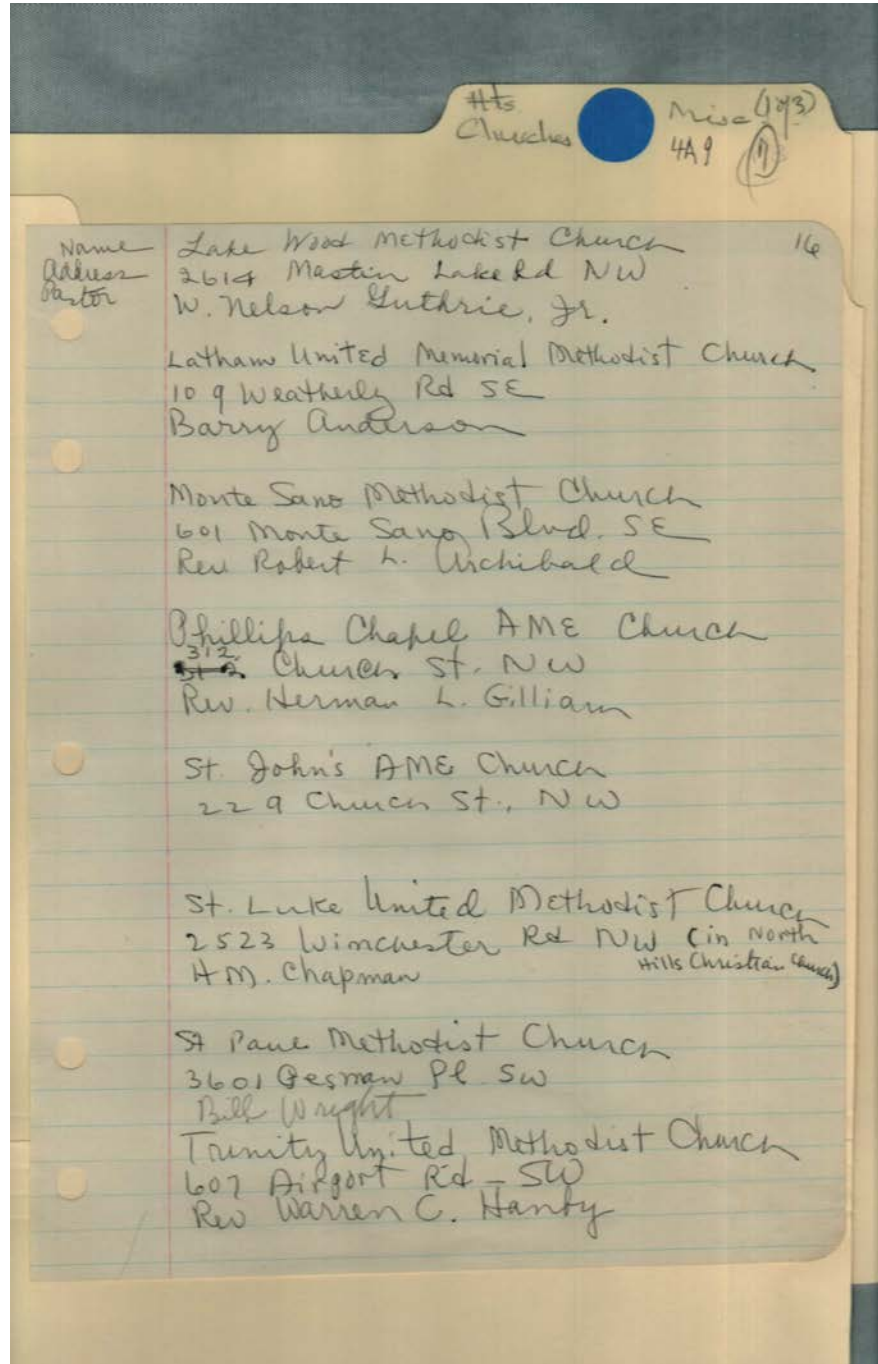 Hts
Churches
Misc (1 of 3)
4A9 7
16
Name
Address
Pastor
Lake Wood Methodist Church
2614 Mastin Lake Rd NW
W. Nelson Guthrie, Jr.
Latham United Memorial Methodist Church
109 Weatherly Rd SE
Barry Anderson
Monte Sano Methodist Church
601 Monte Sano Blvd. SE
Rev Robert L. Archibald
Phillips Chapel AME Church
312
Church St. NW
Rev. Herman L. Gilliam
St. John's AME Church
229 Church St., NW
St. Luke United Methodist Church
2523 Winchester Rd NW (in North
Hills Christian Church)
H M. Chapman
St Paul Methodist Church
3601 Pl SW
Bill Wright
Trinity United Methodist Church
607 Airport Rd - SW
Rev Warren C. Hamby